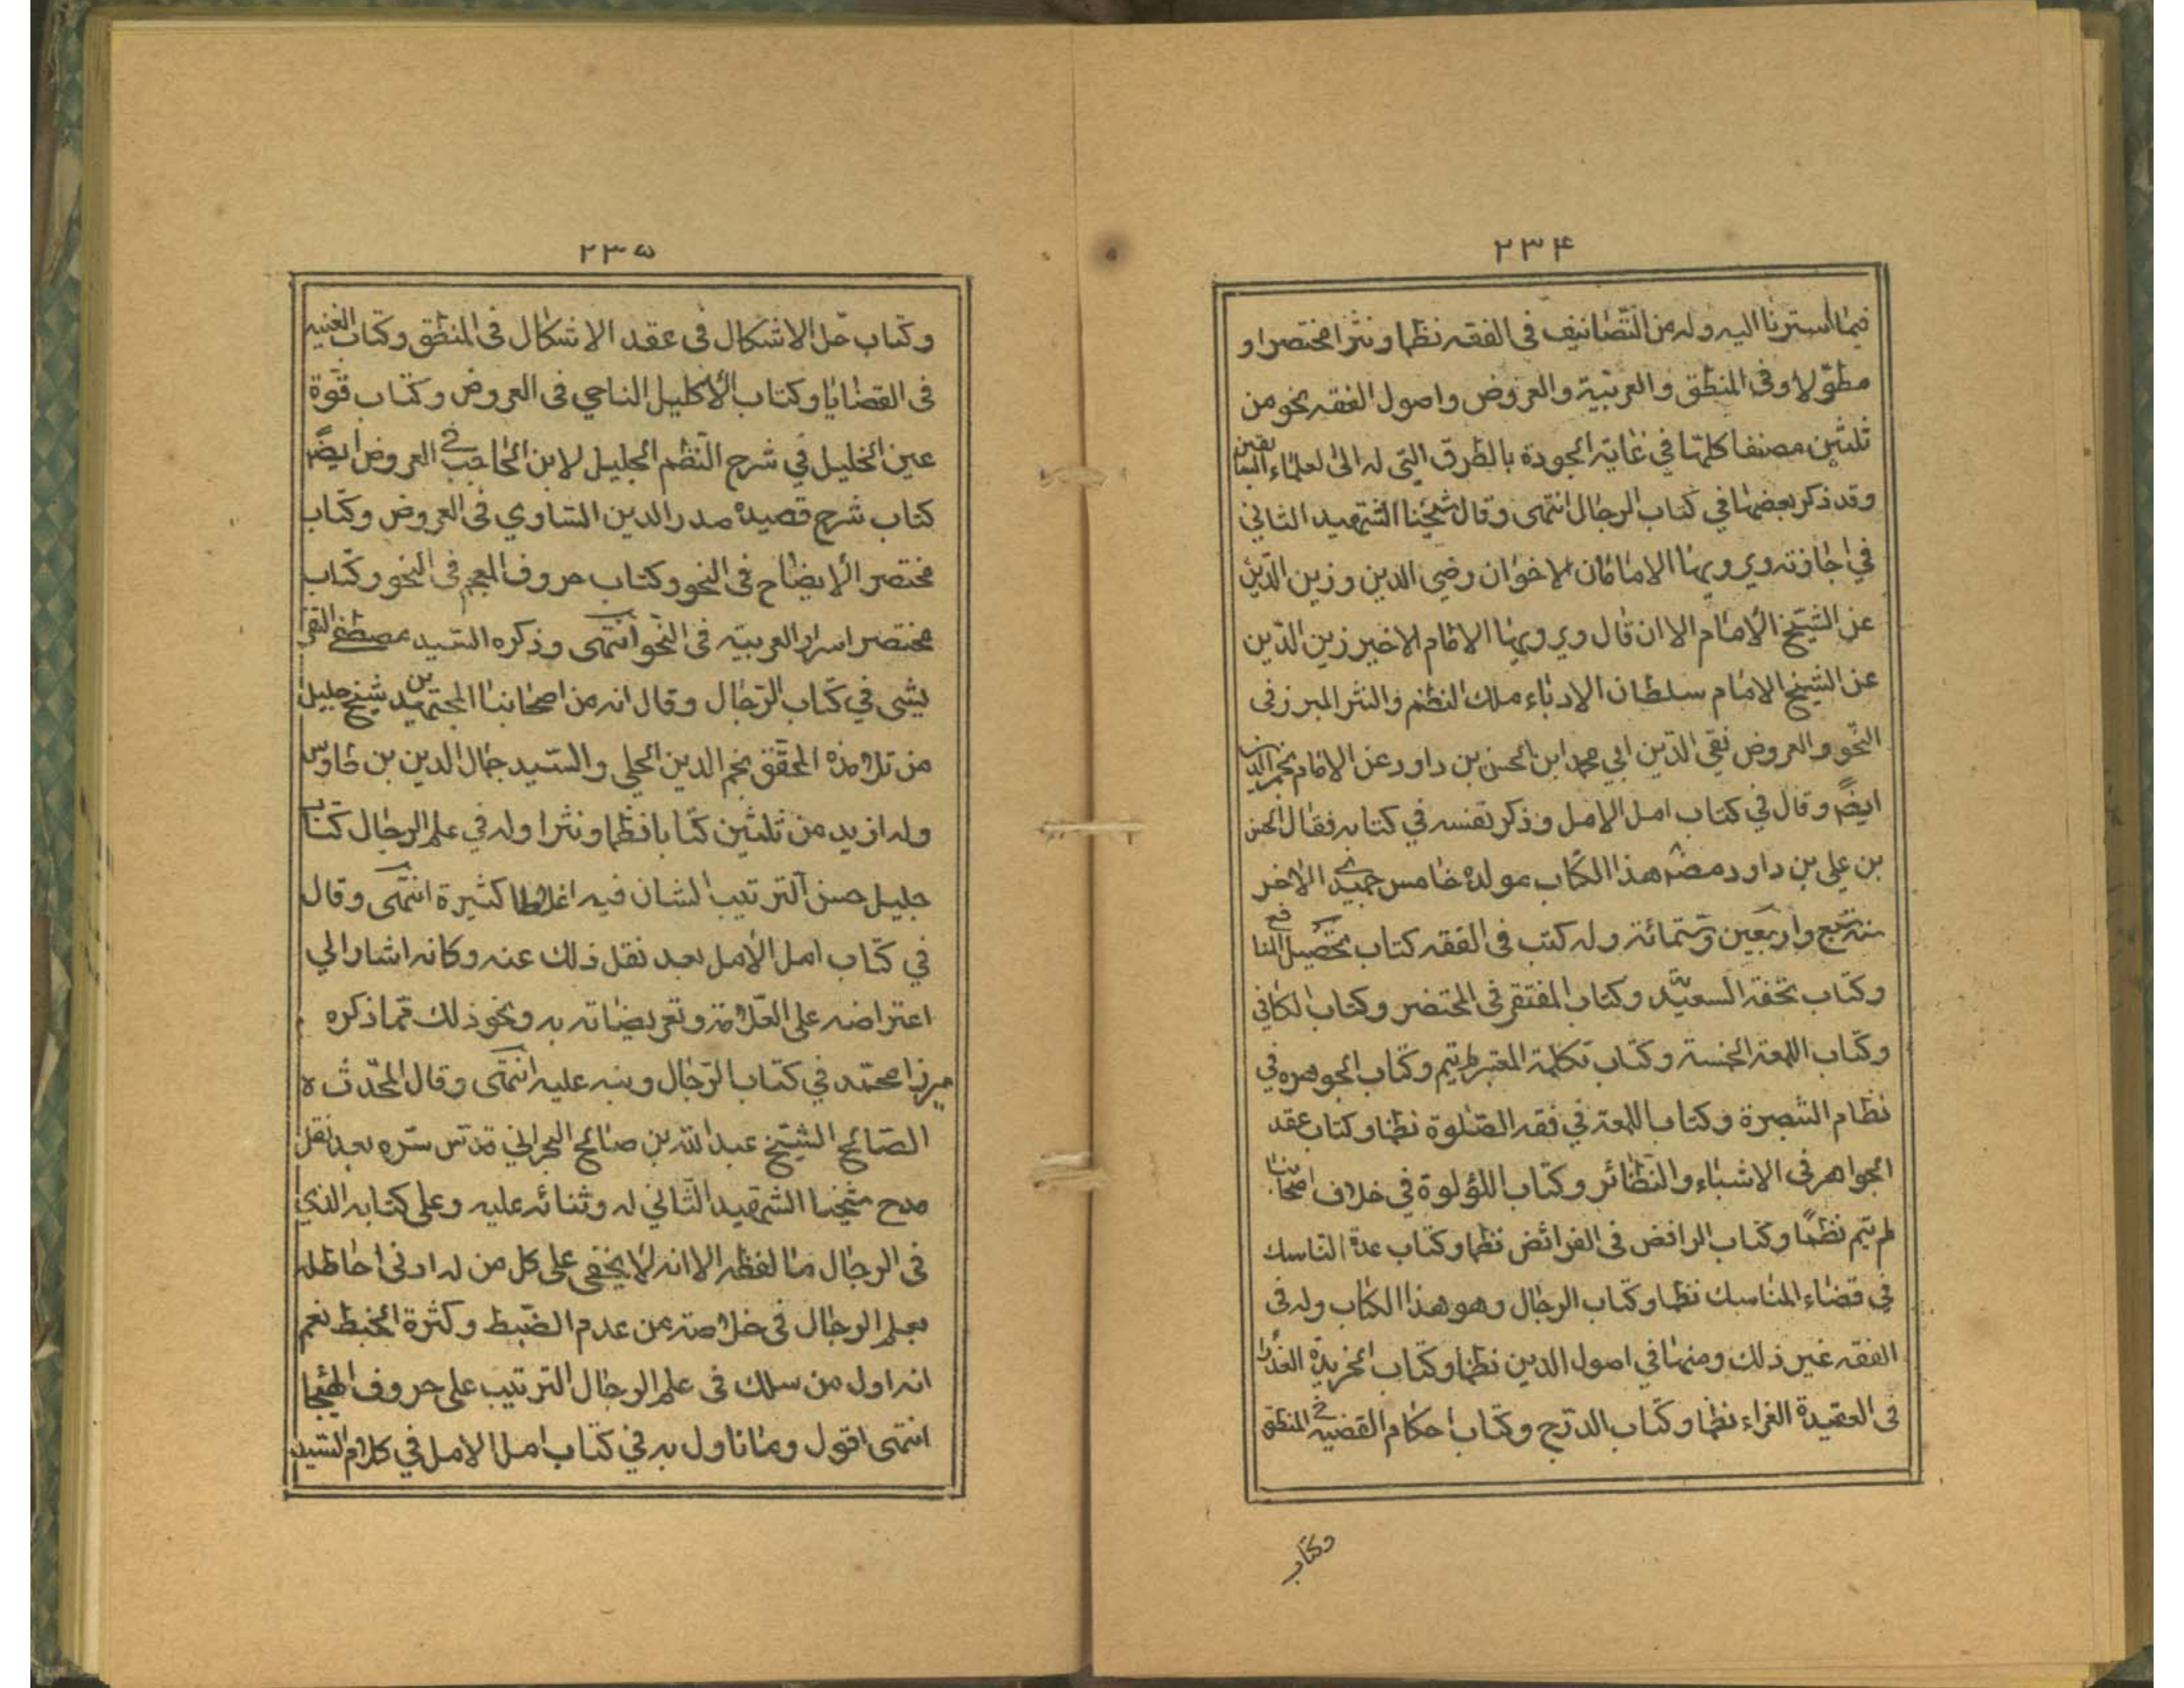 ٢٣۴
فيما اسرنا اليه وله من التصانيف في الفقه نظما ونثرا مختصرا و
مطولا وفي المنطق والعربية والعروض واصول الفقه نحو من
ثلثين مصنفا كلها في غاية الجودة بالطرق التي له الى لعلماء السابقين
وقد ذكر بعضها في كتاب الرجال انتهى وقال شيخنا الشهيد الثاني
في اجازته ويرويها الامامان الاخوان رضي الدين وزين الدين
عن الشيخ الامام الا ان قال ويرويها الامام الاخير زين الدين
عن الشيخ الامام سلطان الادباء ملك النظم والنثر المبرز في
النحو والعروض نقي الدين ابي محمد ابن الحسن بن داود عن الامام نجم الدين
ايضً وقال في كتاب امل الامل وذكر نفسه في كتابه فقال الحسن
بن علي بن داود مصنف هذا الكتاب مولده خامس جميدى الاخر
سنة سبع واربعين وستمائة وله كتب في الفقه كتاب تحصيل المنافع
وكتاب تحفة السعيد وكتاب المفتقر في المختصر وكتاب الكافي
وكتاب اللمعة الخمسة وكتاب تكلمة المعتبر لم يتم وكتاب الجوهره في
نظام التبصرة وكتاب اللمعة في فقه الصلوة نظما وكتاب عقد
الجواهر في الاشباء والنظائر وكتاب اللؤلوة في خلاف اصحابنا
لم يتم نظمًا وكتاب الرافض في الفرائض نظما وكتاب عدة الناسك
في قضاء المناسك نظما وكتاب الرجال وهو هذا الكتاب وله في
الفقه غير ذلك ومنها في اصول الدين نظما وكتاب الخريدة العذراء
في العقيدة الغراء نظما وكتاب الدرج وكتاب احكام القضية في المنطق
وكتاب
٢٣۵
وكتاب حل الاشكال في عقد الاشكال في المنطق وكتاب الغنيه
في القضايا وكتاب الاكليل التاجي في العروض وكتاب قوة
عين الخليل في شرح النظم الجليل لابن الحاجب في العروض ايضً
كتاب شرح قصيده صدر الدين الساوي في العروض وكتاب
مختصر الايضاح في النحو وكتاب حروف المعجم في النحو وكتاب
مختصر اسرار العربية في النحو انتهى وذكره السيد مصطفى التفر
يشى في كتاب الرجال وقال انه من اصحابنا المجتهدين شيخ جليل
من تلامذه المحقق نجم الدين الحلي والسيد جمال الدين بن طاوس
وله ازيد من ثلثين كتابا نظما ونثرا وله في علم الرجال كتاب
جليل حسن الترتيب الشان فيه اغلاطا كثيرة انتهى وقال
في كتاب امل الامل بعد نقل ذلك عنه وكانه اشار الي
اعتراضه على العلامة وتعريضاته به ونحو ذلك مما ذكره
ميرزا محمد في كتاب الرجال ونبه عليه انتهى وقال المحدث ه
الصالح الشيخ عبد الله بن صالح البحراني قدس سره بعد نقل
مدح شيخنا الشهيد الثاني له وثنائه عليه وعلى كتابه الذي
في الرجال ما لفظه الا انه لا يخفى على كل من له ادنى احاطله
بعلم الرجال في خلاصته من عدم الضبط وكثرة الخبط نعم
انه اول من سلك في علم الرجال الترتيب على حروف الهيجا
انتهى اقول وما تاول به في كتاب امل الامل في كلام السيد